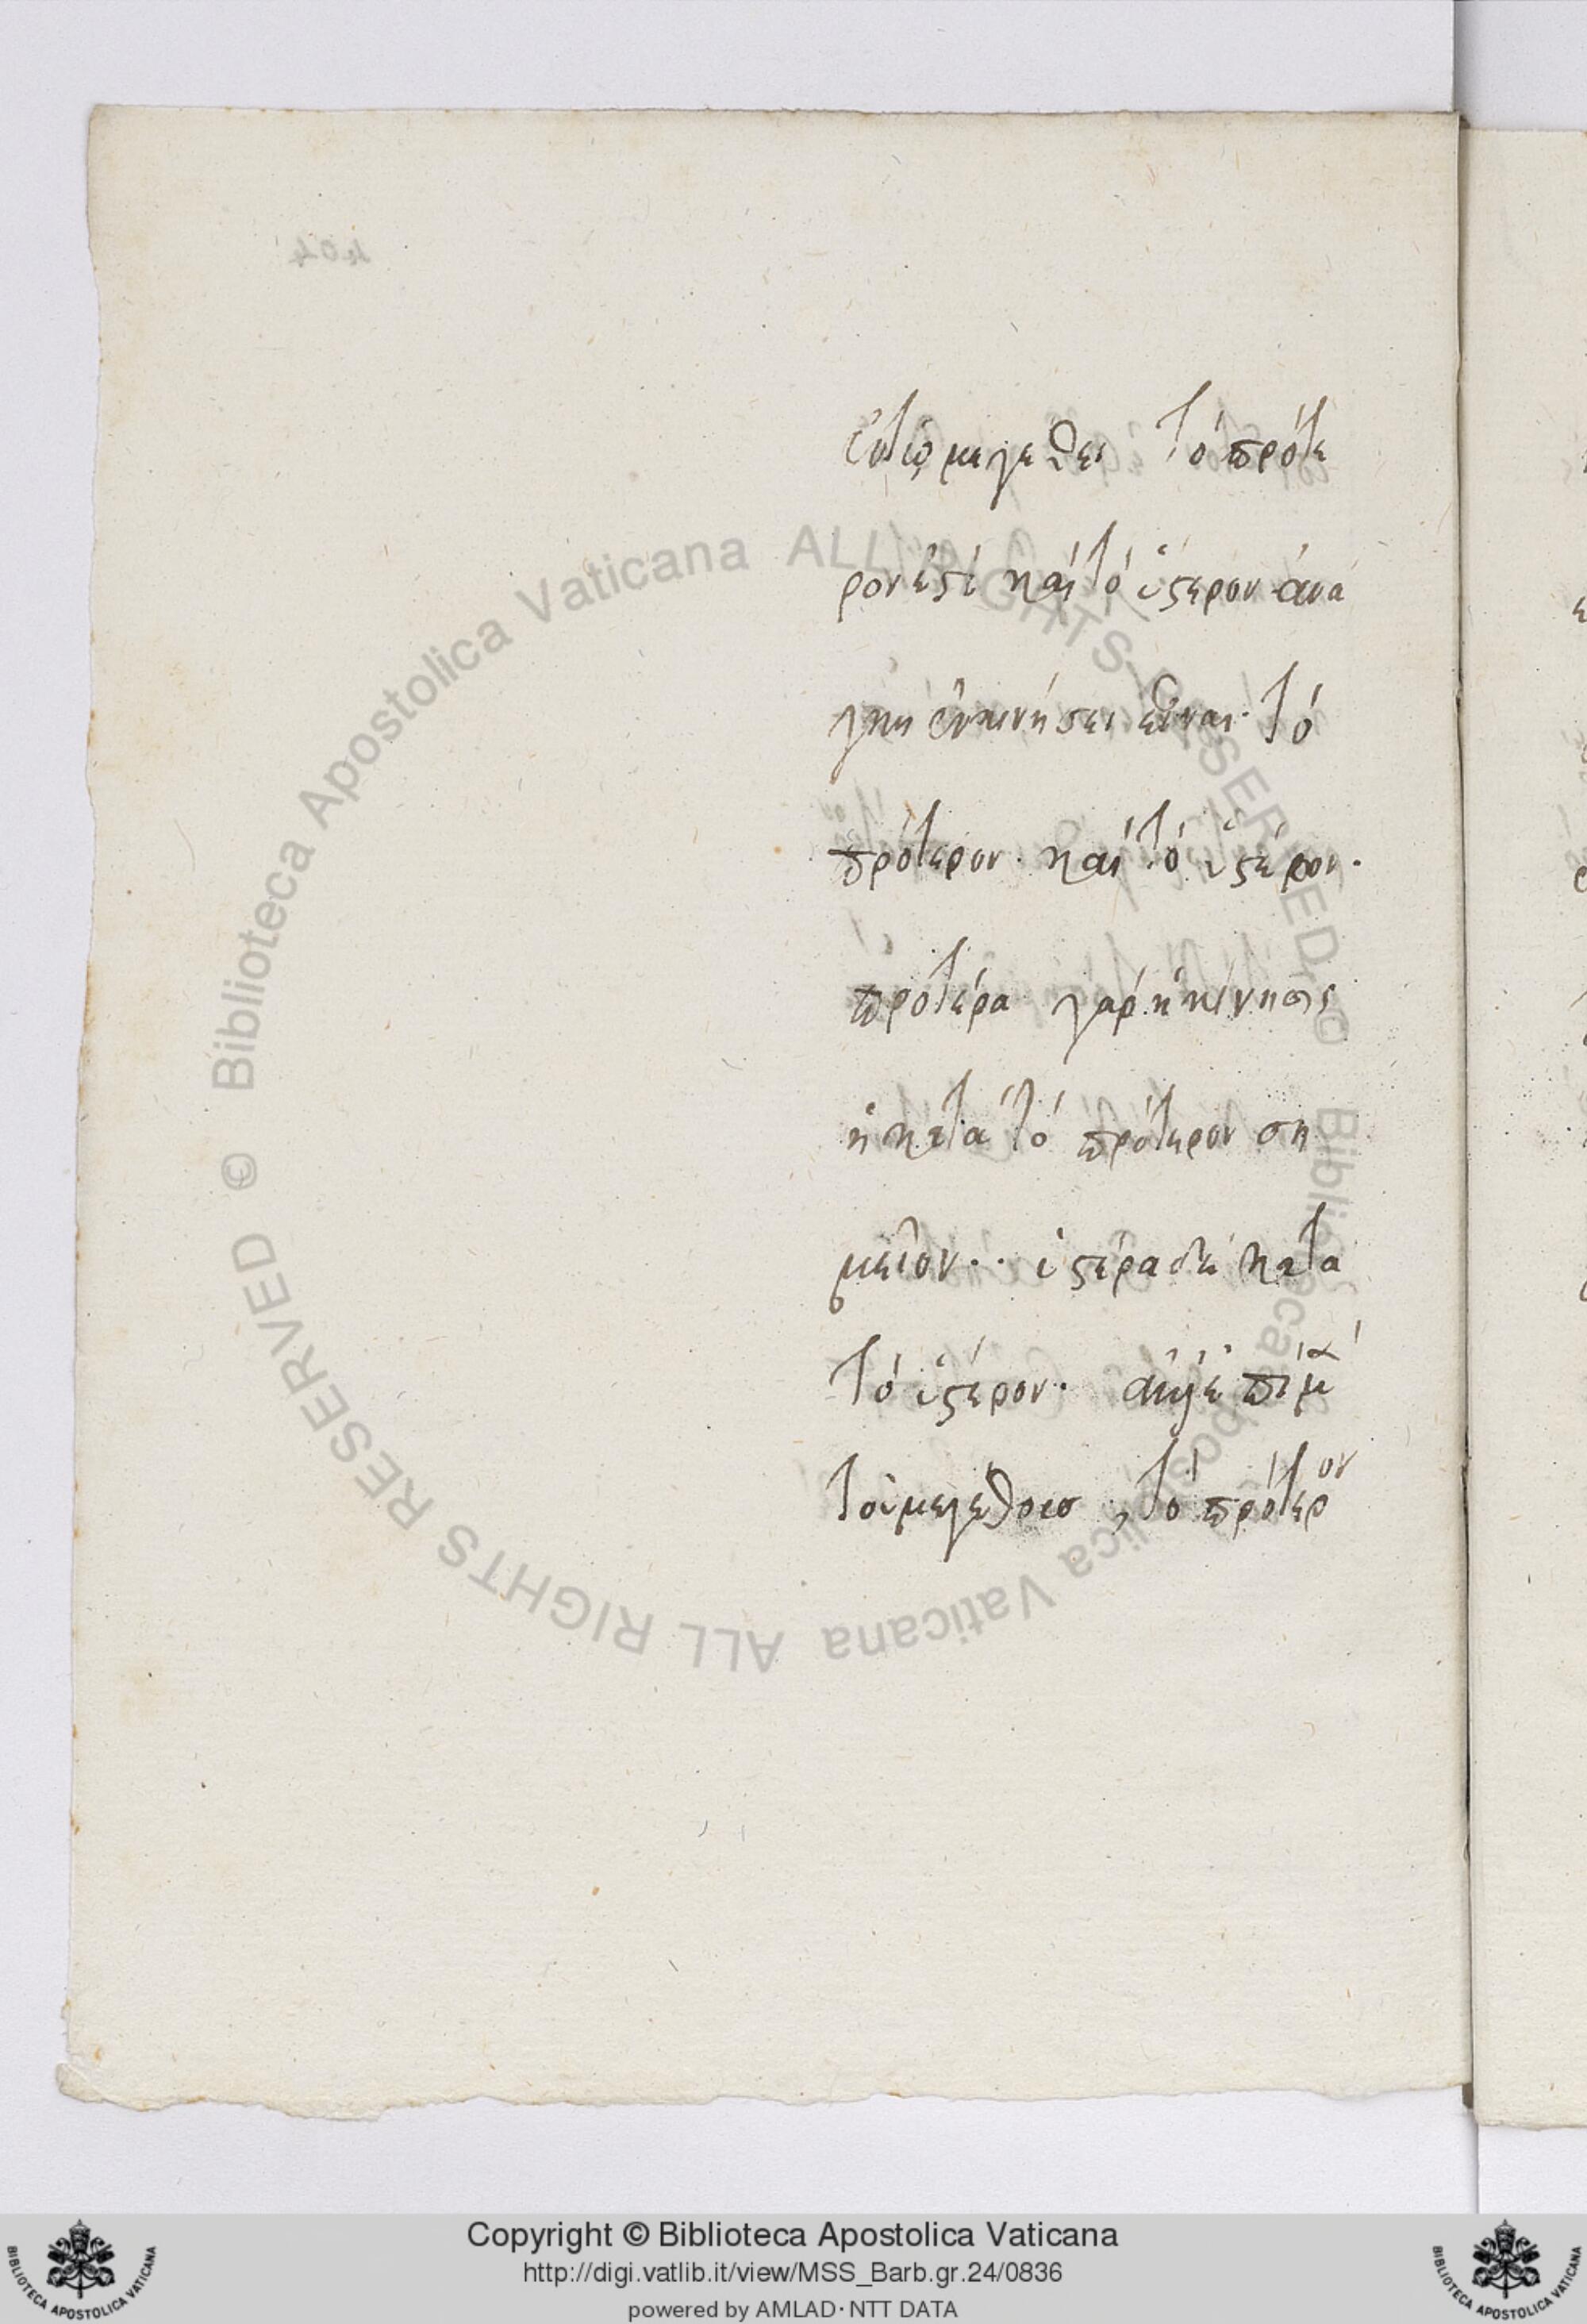 ἐν τῷ μεγέθει τὸ πρότε
ρον ἐστὶ καὶ τὸ ὕστερον ἀνά
γκη ἐν κινήσει εἶναι· τὸ
πρότερον· καὶ τὸ ὑστέρον·
προτέρα γὰρ ἡ κίνησις
ἡ κατὰ τὸ πρότερον ση
μεῖον·· ὑστέρα δὲ κατὰ
τὸ ὑστέρον·
τοῦ μεγέθουσ, τὸ πρότερον
Copyright © Biblioteca Apostolica Vaticana
http://digi.vatlib.it/view/MSS_Barb.gr.24/0836
powered by AMLAD · NTT DATA
© Biblioteca Apostolica Vaticana ALL RIGHTS RESERVED © Biblioteca Apostolica Vaticana ALL RIGHTS RESERVED
BIBLIOTECA APOSTOLICA VATICANA
BIBLIOTECA APOSTOLICA VATICANA